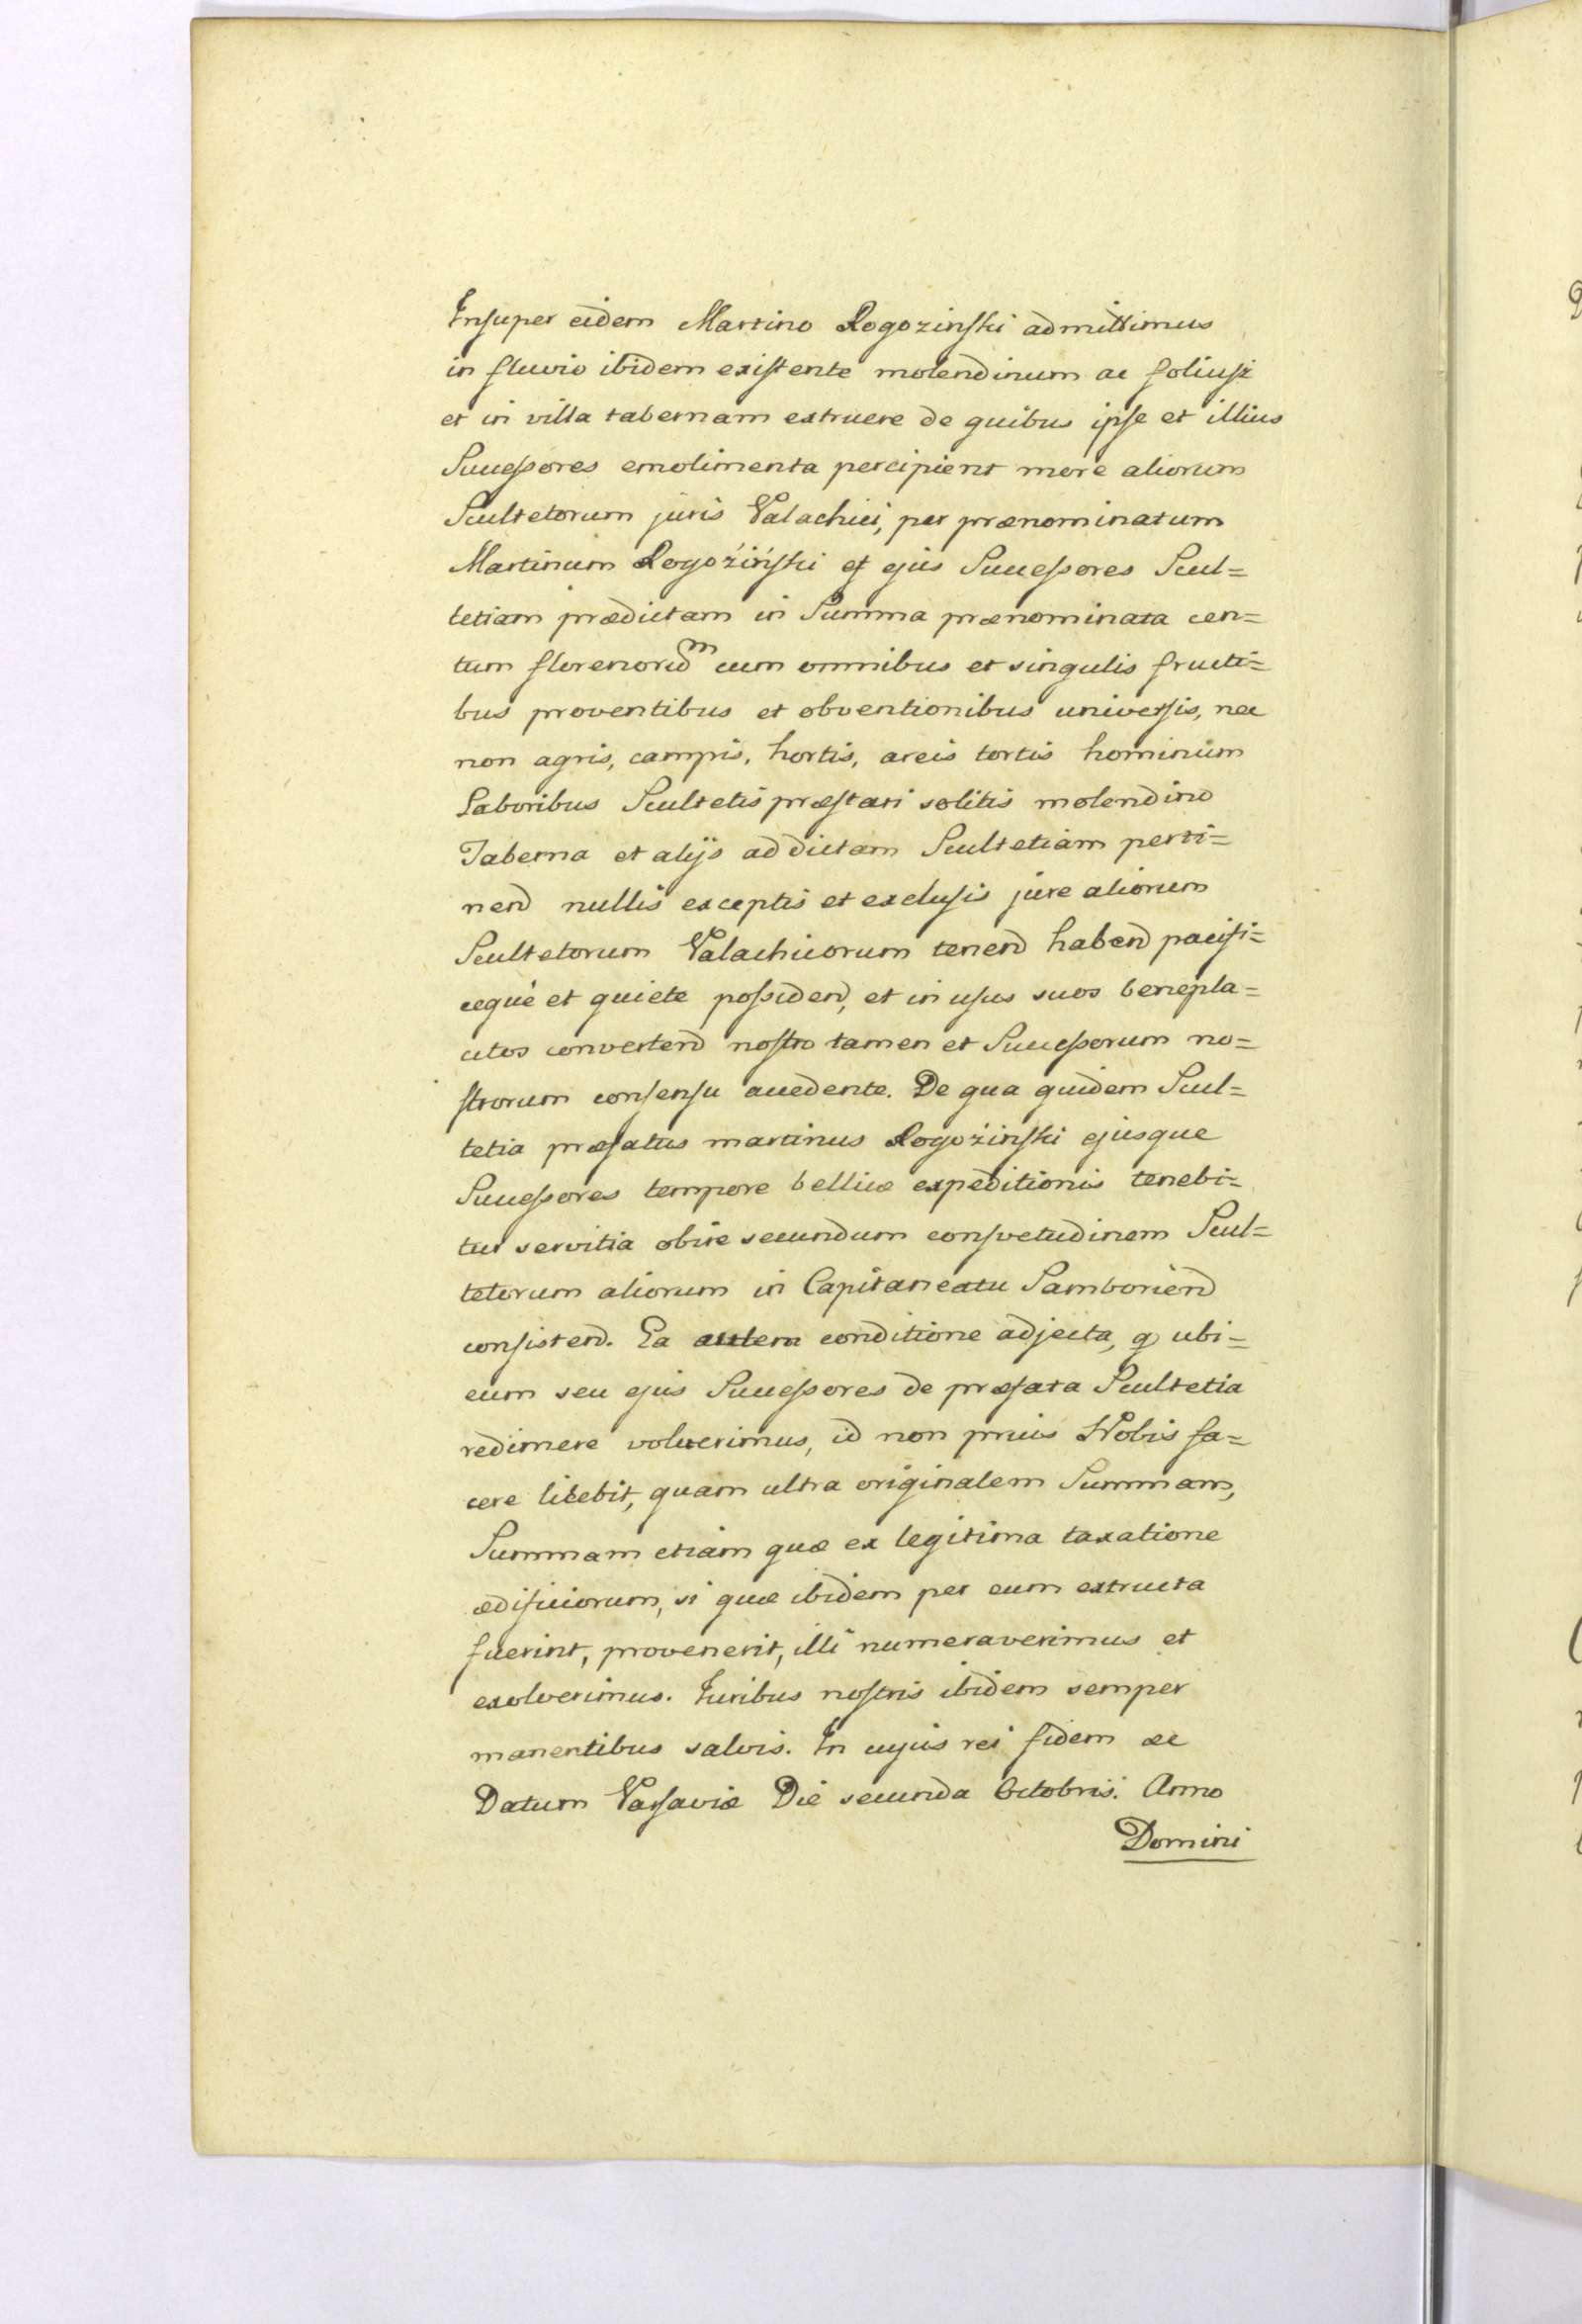 Insuper eidem Martino Rogozinski admittimus
in fluvio ibidem existente molendinum ac foliusz
et in villa tabernam extruere de quibus ipse et illius
Successores emolimenta percipient more aliorum
Scultetorum juris Valachici, per prænominatum
Martinum Rogoźiński et ejus Successores Scul=
tetiam prædictam in Summa prænominata cen=
tum florenorum cum omnibus et singulis fructi=
bus proventibus et obventionibus universis, nec
non agris, campis, hortis, areis tortis hominum
Laboribus Scultetis præstari solitis molendino
Taberna et alijs ad dictam Scultetiam perti=
nend nullis exceptis et exclusis jure aliorum
Scultetorum Valachicorum tenend habend pacifi=
ceque et quiete possidend, et in usus suos benepla=
citos convertend nostro tamen et Successorum no=
strorum consensu accedente. De qua quidem Scul=
tetia præfatus martinus Rogoźinski ejusque
Successores tempore bellicæ expeditionis tenebi=
tur servitia obire secundum consvetudinem Scul=
tetorum aliorum in Capitaneatu Samboriend
consistend. Ea autem conditione adjecta, q ubi=
eum seu ejus Successores de præfata Scultetia
redimere voluerimus, id non prius Nobis fa=
cere licebit, quam ultra originalem Summam,
Summam etiam quæ ex legitima taxatione
ædificiorum, si quæ ibidem per eum extructa
fuerint, provenerit, illi numeraverimus et
exolverimus. Iuribus nostris ibidem semper
manentibus salvis. In cujus rei fidem &c
Datum Varsaviæ Die secunda Octobris. Anno
Domini